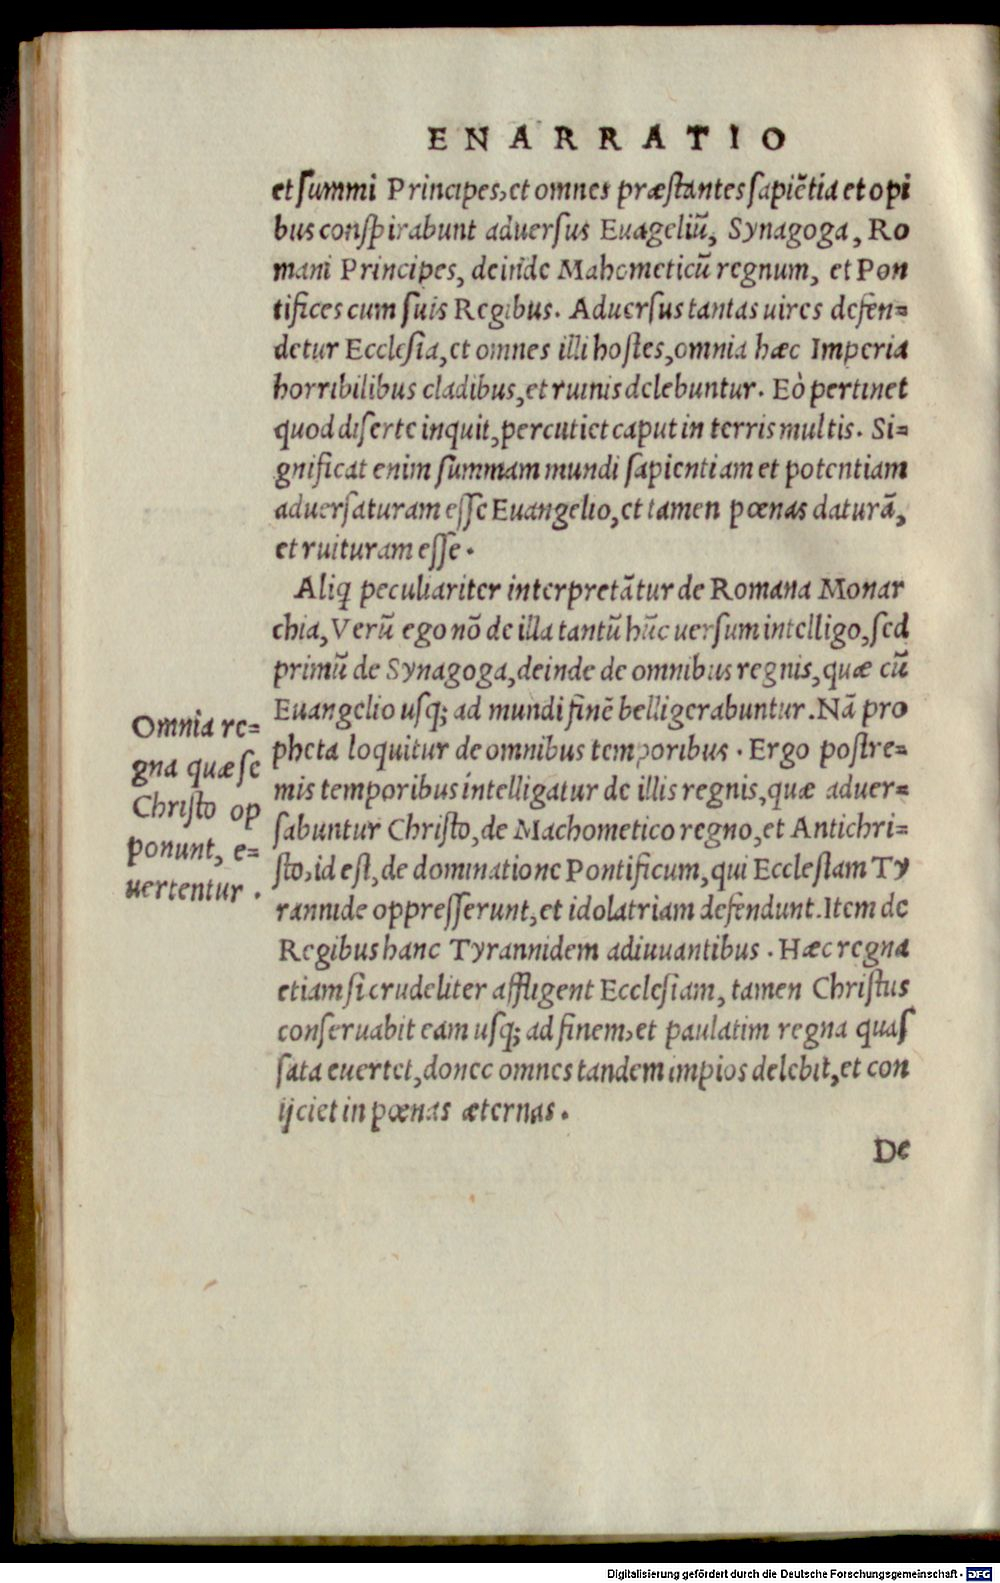 ENARRATIO
et ſummi Principes, et omnes præſtantes ſapiẽtia et opi
bus conſpirabunt aduerſus Euageliũ, Synagoga, Ro
mani Principes, deinde Mahometicũ regnum, et Pon
tifices cum ſuis Regibus. Aduerſus tantas uires defen=
detur Eccleſia, et omnes illi hoſtes, omnia hæc Imperia
horribilibus cladibus, et ruinis delebuntur. Eò pertinet
quod diſerte inquit, percutiet caput in terris multis. Si=
gnificat enim ſummam mundi ſapientiam et potentiam
aduerſaturam eſſe Euangelio, et tamen pœnas daturã,
et ruituram eſſe.
Aliq̃ peculiariter interpretãtur de Romana Monar
chia, Verũ ego nõ de illa tantũ hũc uerſum intelligo, ſed
primũ de Synagoga, deinde de omnibus regnis, quæ cũ
Euangelio uſq; ad mundi finẽ belligerabuntur. Nã pro
pheta loquitur de omnibus temporibus. Ergo poſtre=
mis temporibus intelligatur de illis regnis, quæ aduer=
ſabuntur Chriſto, de Machometico regno, et Antichri=
ſto, id eſt, de dominatione Pontificum, qui Eccleſiam Ty
rannide oppreſſerunt, et idolatriam defendunt. Item de
Regibus hanc Tyrannidem adiuuantibus. Hæc regna
etiamſi crudeliter affligent Eccleſiam, tamen Chriſtus
conſeruabit eam uſq; ad finem, et paulatim regna quaſ
ſata euertet, donec omnes tandem impios delebit, et con
ijciet in pœnas æternas.
De
Omnia re=
gna quæ ſe
Chriſto op
ponunt, e=
uertentur.
Digitalisierung gefördert durch die Deutsche Forschungsgemeinschaft - DFG